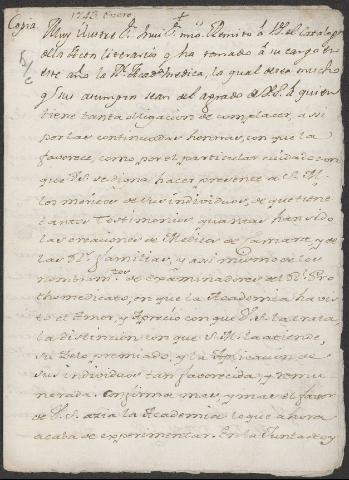 Copia. 1743 Enero +
Muy Ilustre S.r mui S.r mio. Remito à V.S. el Catalogo
de la
literario q ha tomado à su cargo en
este año la R.l Academia Medica, la qual desea mucho
q sus assumptos sean del agrado de V.S. à quien
tiene tanta obligacion de complacer, assi
por las continuadas honrras, con que la
favorece, como, por el particular cuidado con
que V.S. se digna hacer presente à S. M.
los meritos de sus individuos, de que tiene
tantos Testimonios, quantas han sido
las creaciones de Medicos de Camara, y de
las R.s familias, y assi mismo de los
nombiam.tos de examinadores del R.l Pro
thomedicato, en que la Academia ha vis
to el Amor, y Aprecio con que V.S. la trata,
la distincion con que S. M. la atiende,
su Zelo premiado, y la Aplicacion de
sus individuos tan favorecida, y remu
nerada. Confirma mas, y mas el favor
de V. S. azia la Academia lo que ahora
acaba de experimentar. En la Junta de oy